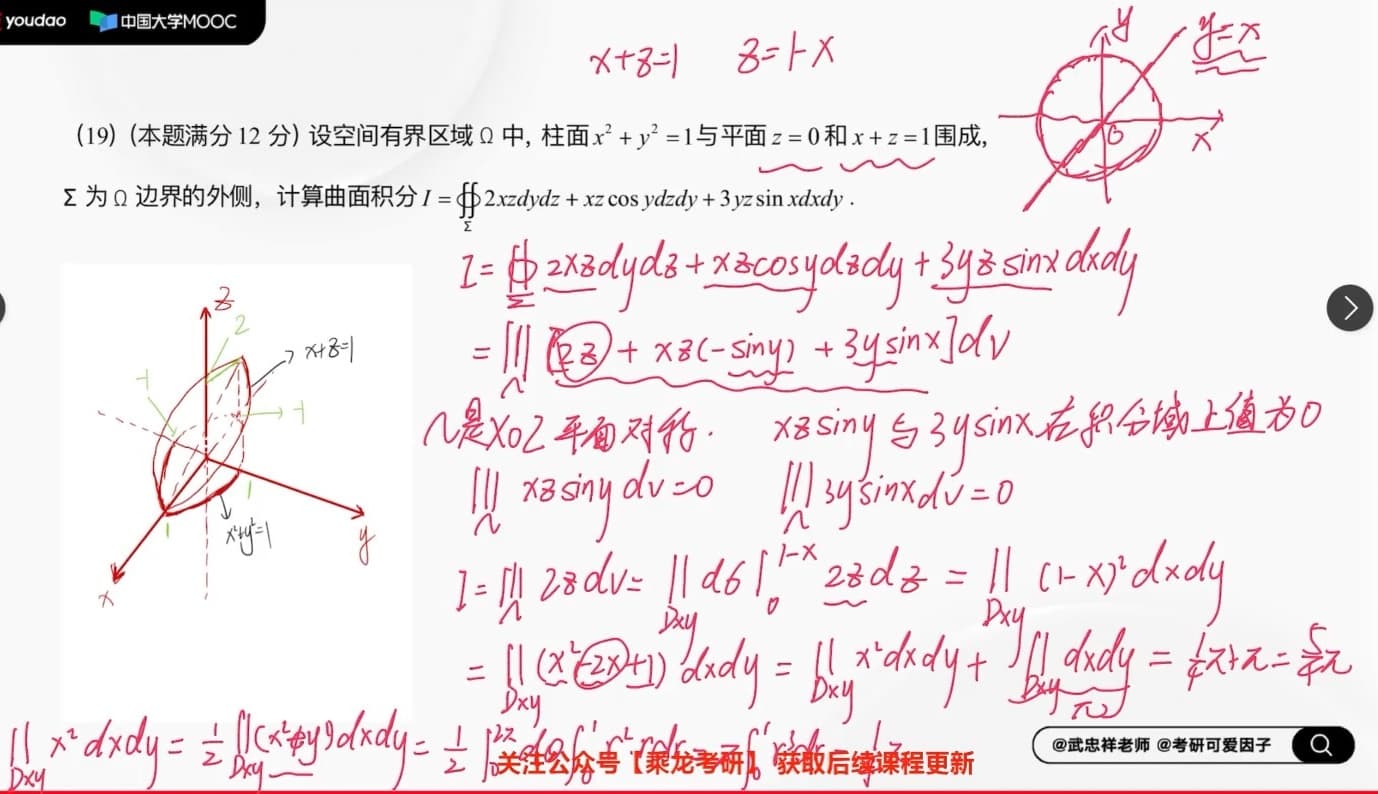 youdao 中国大学MOOC
x+z=1 z=1-x
y y=x
0 x
(19) (本题满分 12 分) 设空间有界区域 Ω 中, 柱面 x² + y² = 1 与平面 z = 0 和 x + z = 1 围成,
Σ 为 Ω 边界的外侧, 计算曲面积分 I = ∯_Σ 2xzdydz + xz cos ydzdy + 3yz sin xdxdy .
I = ∯_Σ 2xzdydz + xzcosydzdy + 3yz sinx dxdy
= ∭_Ω [2z + xz(-siny) + 3ysinx]dv
Ω是xoz平面对称. xzsiny与3ysinx在积分域上值为0
∭_Ω xzsiny dv=0 ∭_Ω 3ysinxdv=0
I=∭_Ω 2zdv=∬_Dxy dσ∫_0^{1-x} 2zdz = ∬_Dxy (1-x)²dxdy
=∬_Dxy (x²-2x+1)dxdy = ∬_Dxy x²dxdy + ∬_Dxy dxdy = 1/4π+π=5/4π
π
z
2
x+z=1
-1
-1
1
1
x²+y²=1
y
x
∬_Dxy x²dxdy = 1/2∬_Dxy (x²+y²)dxdy = 1/2∫_0^{2π}
关注公众号【乘龙考研】获取后续课程更新
@武忠祥老师 @考研可爱因子